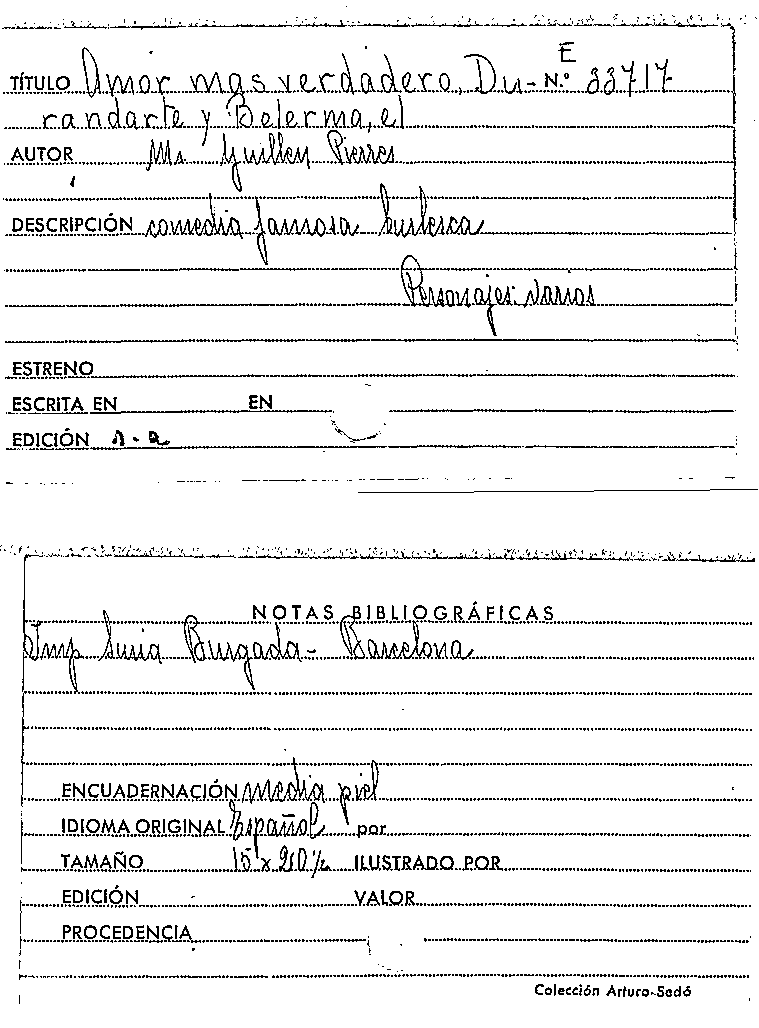 E
TÍTULO Amor mas verdadero, Du- N.º 33717
randarte y Belerma, el
AUTOR Ms Guillen Pierres
DESCRIPCIÓN comedia famosa burlesca
Personajes: varios
ESTRENO
ESCRITA EN EN
EDICIÓN s.a
NOTAS BIBLIOGRÁFICAS
Imp Suria Burgada - Barcelona
ENCUADERNACIÓN media piel
IDIOMA ORIGINAL Español por
TAMAÑO 15 x 210 ILUSTRADO POR
EDICIÓN VALOR
PROCEDENCIA
Colección Arturo-Sedó